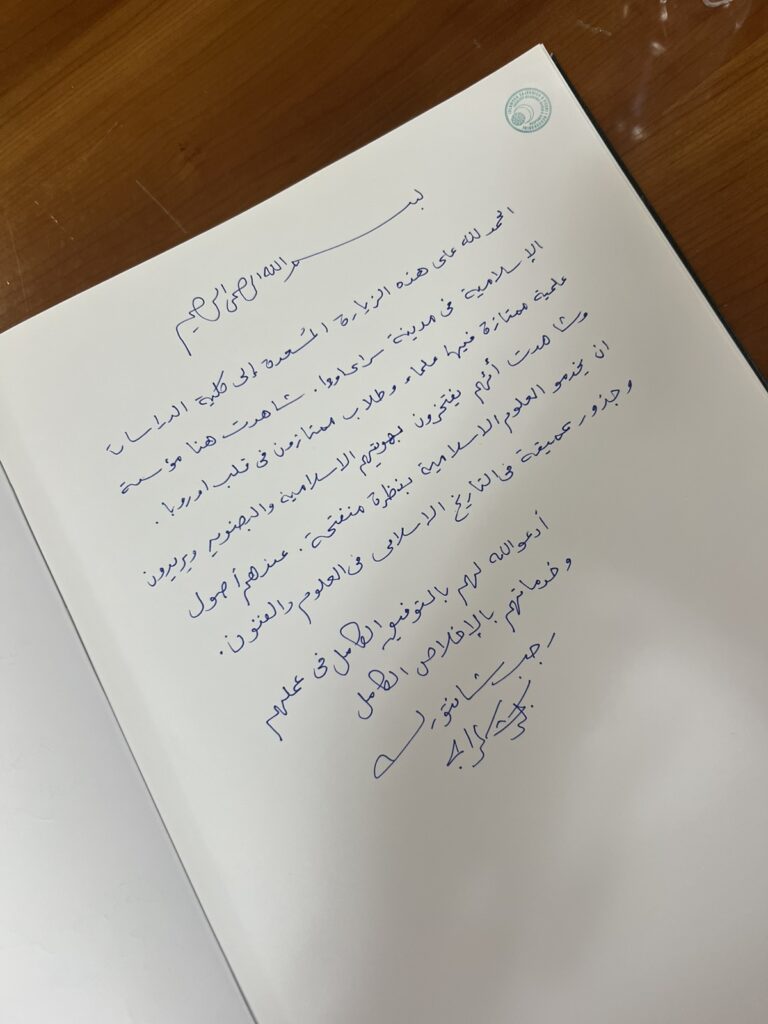 بسم الله الرحمن الرحيم
الحمد لله على هذه الزيارة المُسعدة إلى كلية الدراسات
الإسلامية في مدينة سراييفو. شاهدت هنا مؤسسة
علمية ممتازة فيها علماء وطلاب ممتازون في قلب اوروبا.
وشاهدت أنهم يفتخرون بهويتهم الاسلامية والبصنويه ويريدون
ان يخدمو العلوم الاسلامية بنظرة منفتحة. عندهم أصول
وجذور عميقة في التاريخ الاسلامي في العلوم والفنون.
أدعو الله لهم بالتوفيق الكامل في عملهم
وخدماتهم بالإخلاص الكامل
رجب شانتورك